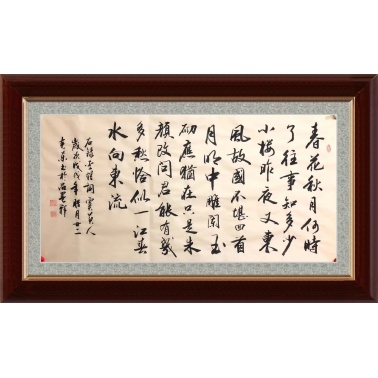 春花秋月何時
了往事知多少
小樓昨夜又東
風故國不堪回首
月明中雕闌玉
砌應猶在只是朱
顏改問君能有幾
多愁恰似一江春
水向東流
右錄李煜詞虞美人
歲次戊戌年臘月廿二
書於